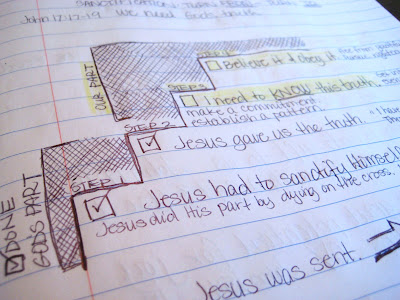 John 17:17-19 We need God's truth
STEP 4
Believe it & obey it.
OUR PART
STEP 3
I need to KNOW this truth.
make a commitment
establish a pattern
STEP 2
Jesus gave us the truth
STEP 1
Jesus had to sanctify Himself
Jesus did His part by dying on the cross.
DONE
GODS PART
Jesus was sent.